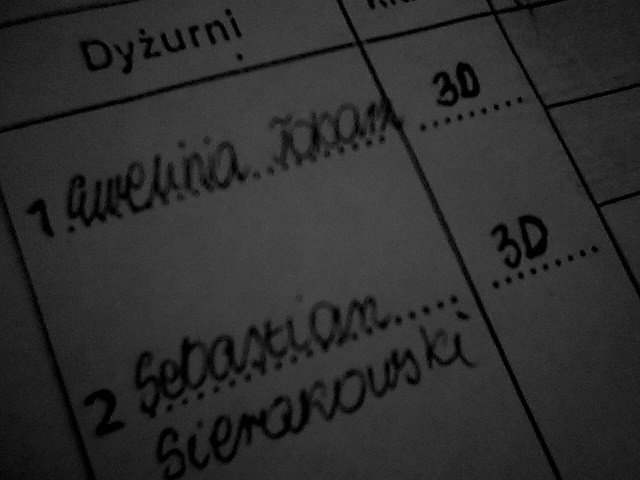 Dyżurni
1 Ewelinia 3D
2 Sebastian 3D
Sierakowski